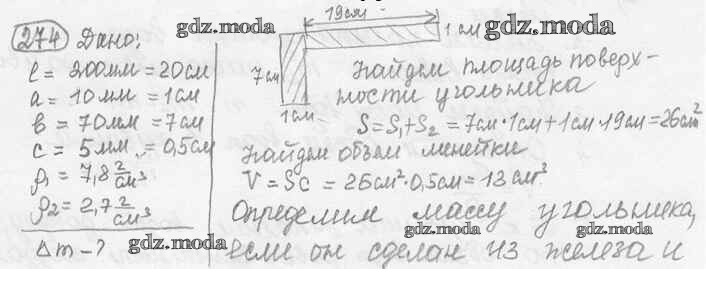 274 Дано:
l = 200мм = 20см
a = 10мм = 1см
b = 70мм = 7см
c = 5мм = 0,5см
ρ₁ = 7,8 г/см³
ρ₂ = 2,7 г/см³
Δm - ?
19см
1 см
7см
1см
Найдем площадь поверх-
ности угольника
S = S₁ + S₂ = 7см · 1см + 1см · 19см = 26см²
Найдем объем линейки
V = Sc = 26см² · 0,5см = 13см³
Определим массу угольника,
если он сделан из железа и
gdz.moda
gdz.moda
gdz.moda
gdz.moda
gdz.moda
gdz.moda